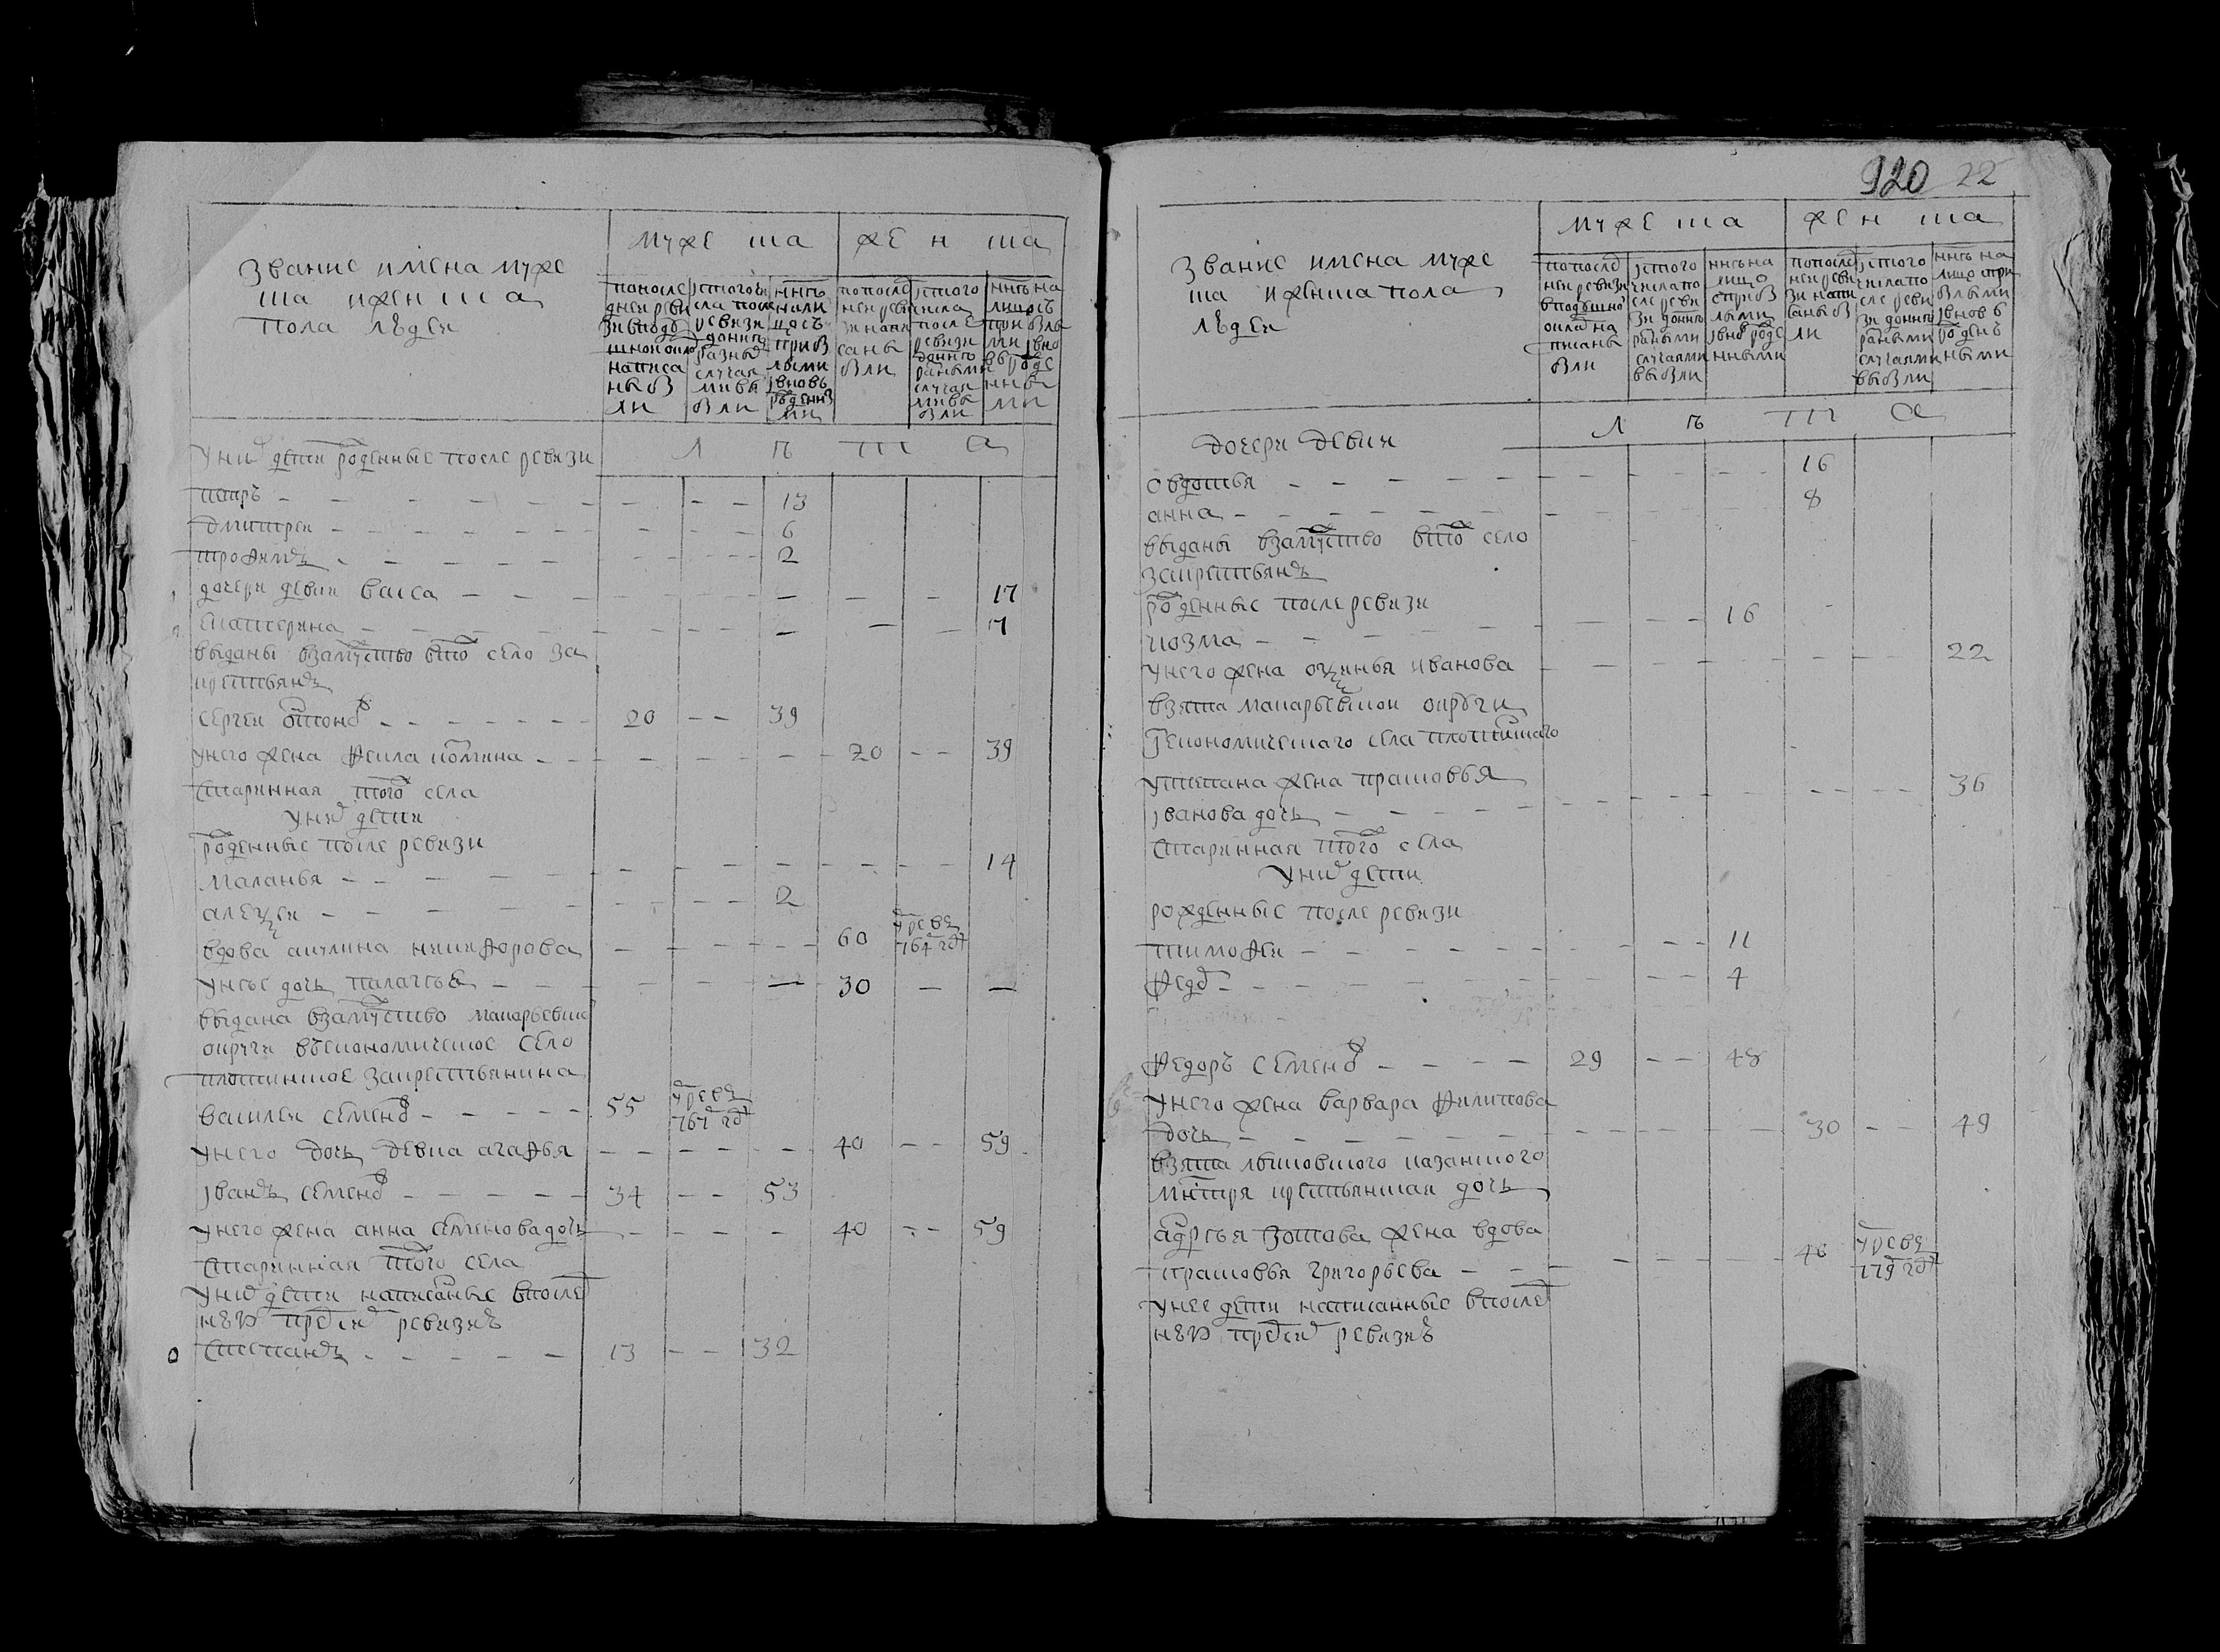 Звание имена муже
ска и женска
пола людеи
муже ска
жен ска
после
днеи реви
зи в поду
шнои окла
написа
ны бы
ли
ис того чи
сла после
ревизи
до ныне
разны
случая
ми вы
были
ныне
на ли
цо съ
прибы
лыми
и вновь
рожденны
ми
по послед
неи реви
зи напи
саны
были
ис того
числа
после
ревизи
до ныне
разными
случая
ми вы
были
ныне на
лицо съ
прибылы
ми и вно
вь рожде
нны
ми
л ѣ т а
у них дети рожденные после ревизи
петръ - - - 13
дмитреи - - - 6
трофимъ - - - 2
дочери девки васса - - - 17
катерина - - - 7
выданы в замужство в то село за
крестьянъ
сергеи антонов - - - 20 - - 39
у него жена фекла козмина - - - 20 - - 39
старинная того села
у них дети
рожденные после ревизи
маланья - - - 14
алексеи - - - 2
вдова акулина никифорова - - - 60 умре в 764 год
у нее дочь палагея - - - 30 - -
выдана в замужство макарьевско
округи въ економическое село
плотинское за крестьянина
василеи семенов - - - 55 умре в 767 год
у него дочь девка агафья - - - 40 - - 59
иванъ семенов - - - 34 - - 53
у него жена анна семенова дочь - - - 40 - - 59
старинная того села
у них дети написаные в послед
неи пред сим ревизиѣ
степанъ - - - 13 - - 32
920 22
Звание имена муже
ска и женска пола
людеи
муже ска
жен ска
по послед
неи ревизи
в подушно
оклад на
писаны
были
ис того
числа по
сле реви
зи до ныне
разными
случаями
выбыли
ныне на
лицо
с прибы
лыми
и внов рожде
нными
по послед
неи реви
зи напи
саны бы
ли
ис того
числа по
сле реви
зи до ныне
разными
случаями
выбыли
ныне на
лицо с при
былыми
и вновь
рожден
ными
л ѣ т а
дочери девки
овдотья - - - 16
анна - - - 8
выданы в замужство в то село
за крестьянъ
рожденные после ревизи
козма - - - 16
у него жена оксинья иванова - - - 22
взята макарьевскои округи
економическаго села плотинскаго
у степана жена прасковья
иванова дочь - - - 36
старинная того села
у них дети
рожденные после ревизи
тимофеи - - - 11
федор - - - 4
федоръ семенов - - - 29 - - 48
у него жена варвара филипова
дочь - - - 30 - - 49
взята лысковского казанского
мнстря крестьянская дочь
андрея зотова жена вдова
прасковья григорьева - - - 40 умре в 779 год
у нее дети написанные в послед
неи пред сим ревизиѣ